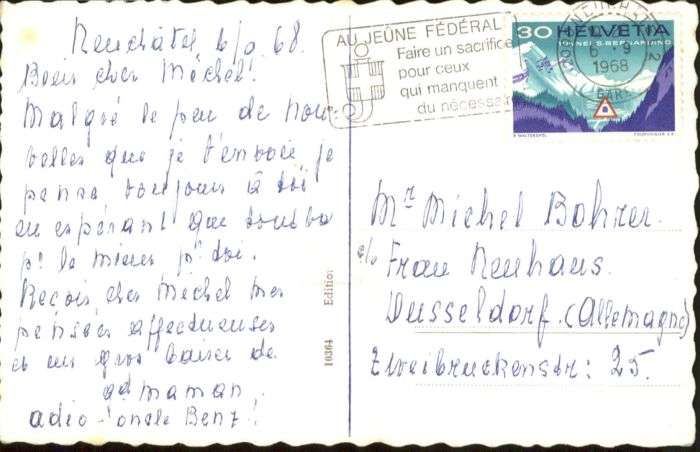 Neuchâtel 6/9 68.
Bons cher Méchel!
Malgré le peu de nou-
velles que je t'envoie je
pense toujours à toi
en espérant que tout va
pr le mieux pr toi.
Reçois cher Méchel mes
pensées affectueuses
et un gros baiser de
maman.
adio - oncle Benz!
AU JEÛNE FÉDÉRAL
Faire un sacrifice
pour ceux
qui manquent
du nécessai
30 HELVETIA
6 9
1968
Mr Michel Bohrer.
c/o Frau Neuhaus.
Dusseldorf. (Allemagne)
Zweibruckenstr: 25.
10364 Edition